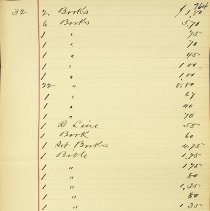 32 2 Books
6 Books 5.70
1 " 75
1 " 70
1 " 45
1 " 1.00
1 " 1.00
22 "
1 " 67
1 "
1 " 40
1 " 70
1 55
1 Book 60
1 Books 4.75
1 Bible 1.75
1 " 1.75
1 " 80
1 " 1.35
1 " 80
1 " 1.35